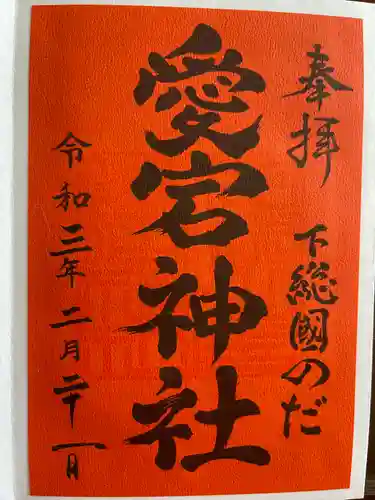 奉拝
下総國のだ
愛宕神社
令和三年二月二十一日